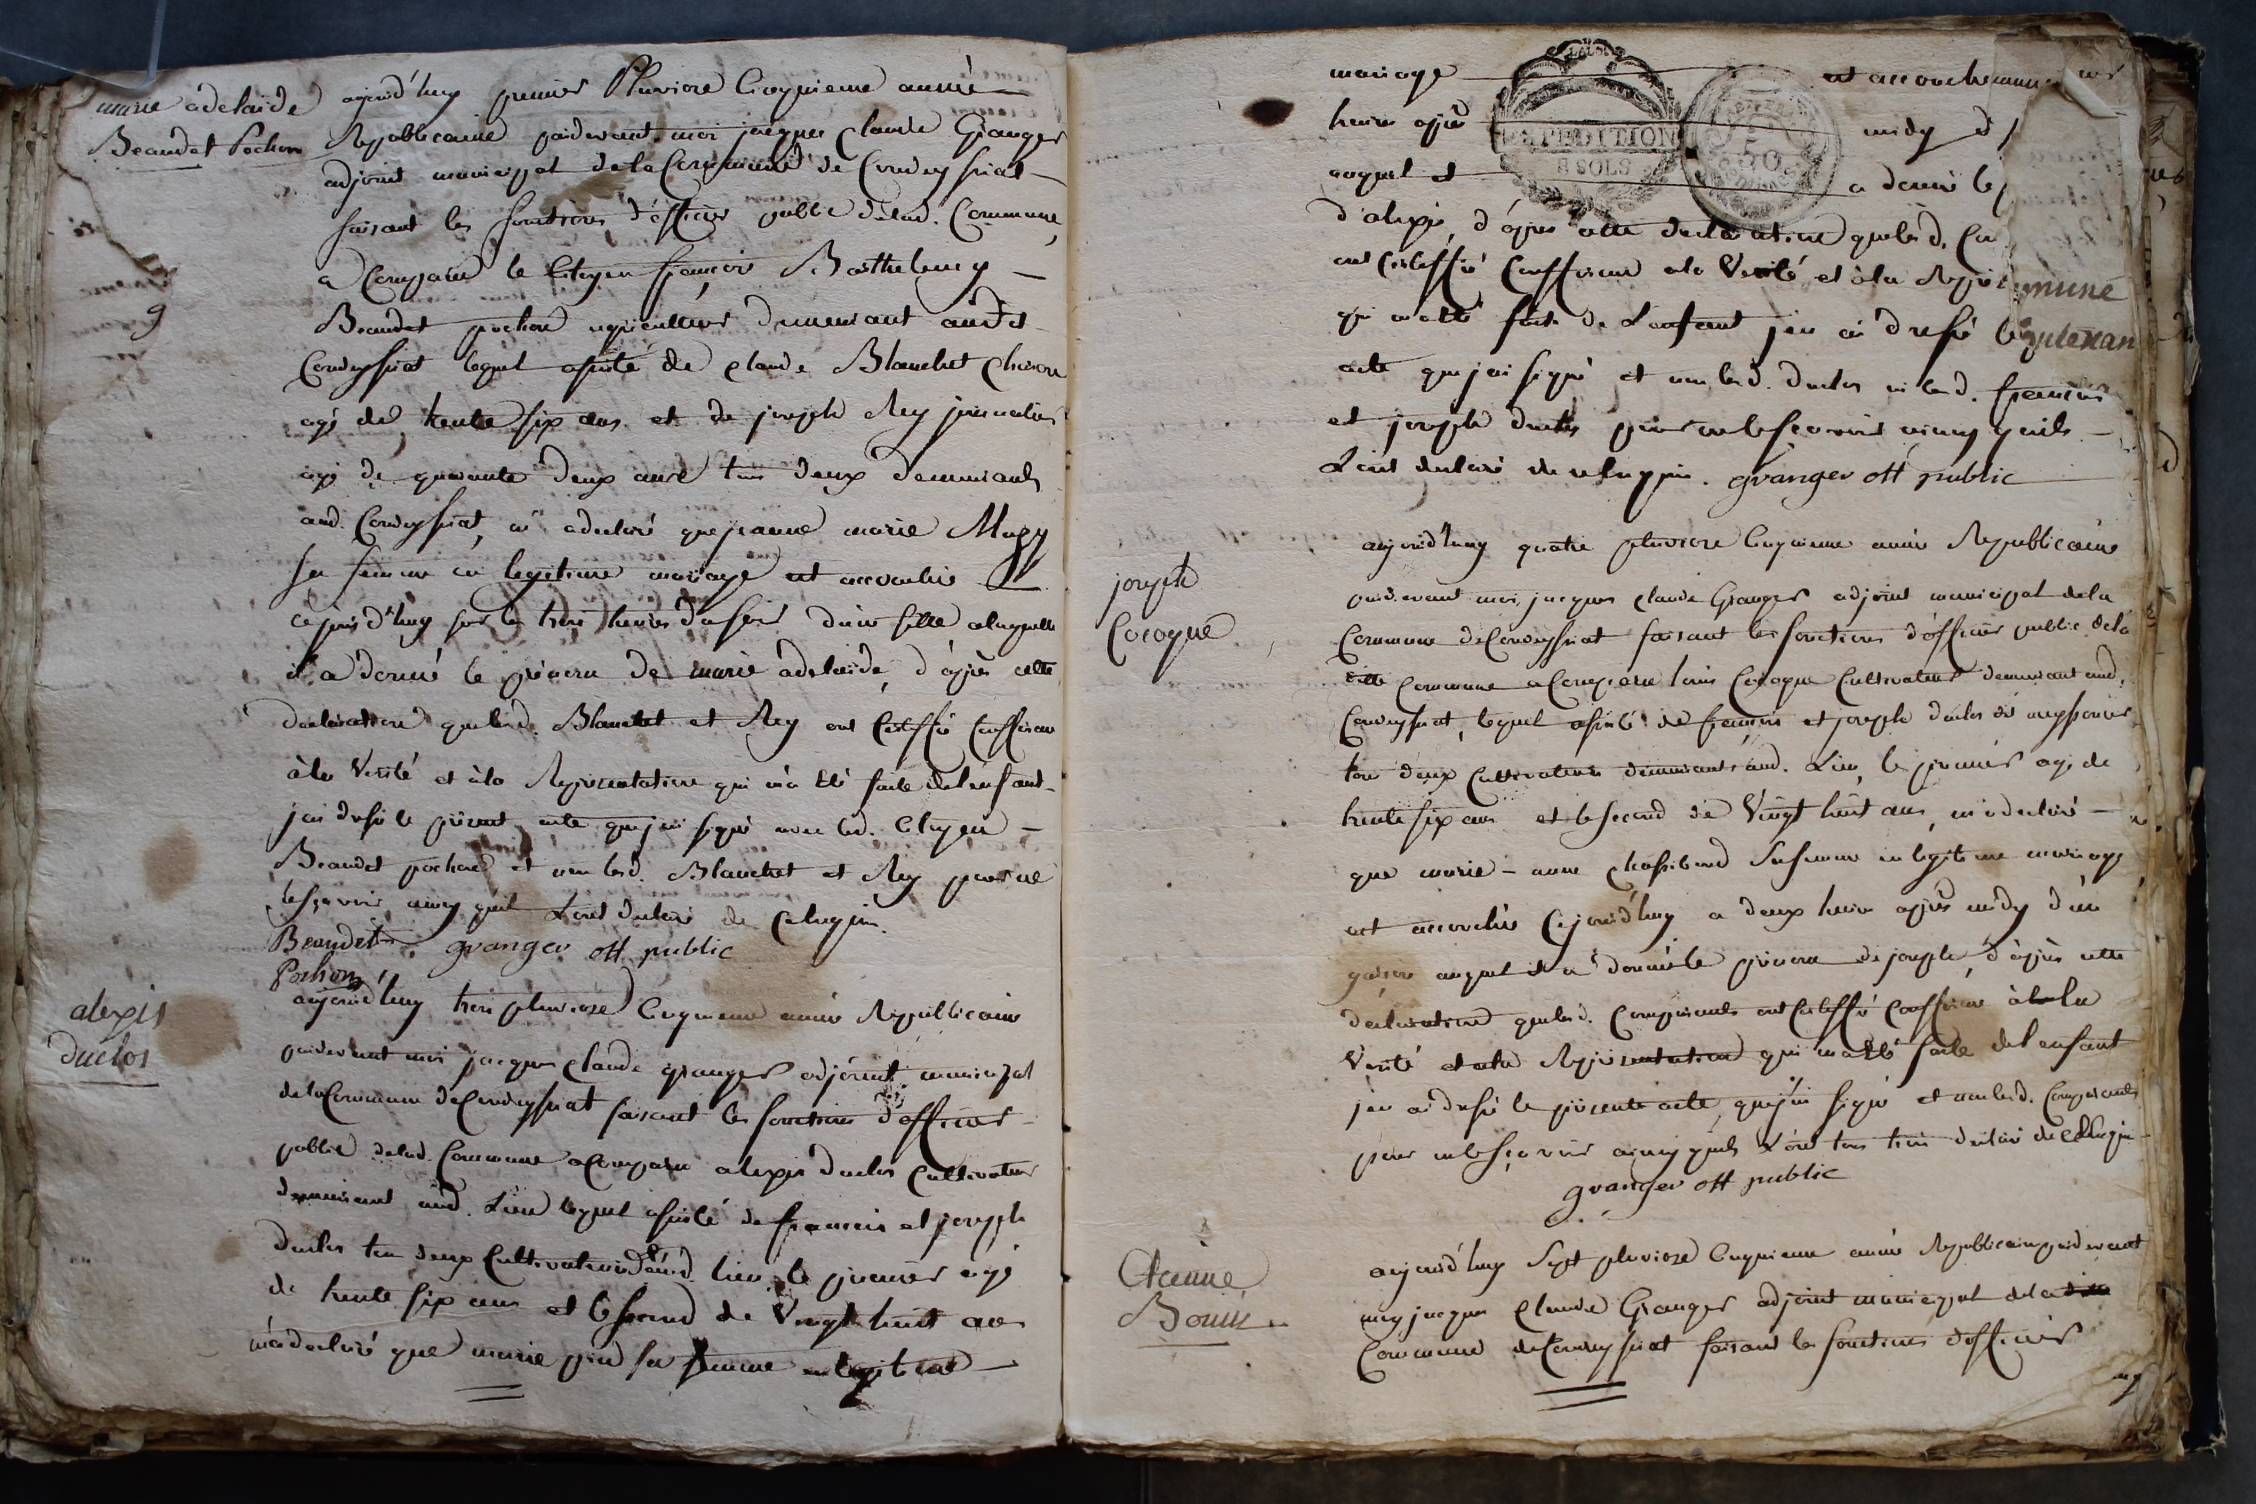 marie adelaide
Beaudet Pochon
aujourd'huy premier Pluviose Cinquieme année
Republicaine pardevant moi jacques Claude Granger
adjoint municipal de la Commune de Condeyssiat
faisant les fonctions d'officier public de lad. Commune,
a Comparu le Citoyen françois Barthelemy
Beaudet pochon agriculteur demeurant audit
Condeyssiat lequel assisté de Claude Blanchet
agé de trente six ans et de joseph Rey journalier
agé de quarante deux ans tous deux demeurants
aud. Condeyssiat, m'a declaré que jeanne marie
sa femme en legitime mariage est accouchée
ce jourd'huy sur les trois heures du soir d'une fille a laquelle
il a donné le prénom de marie adelaide, d'après cette
declaration que lesd. Blanchet et Rey ont Certiffié Conforme
à la Verité et à la Representation qui m'a été faite de l'enfant
j'ai dressé le présent acte que j'ai signé avec led. Citoyen
Beaudet pochon et non lesd. Blanchet et Rey pour ne
le sçavoir ainsy qu'il l'ont declaré de ce requis.
Beaudet granger off public
Pochon
9
alexis
duclos
aujourd'huy trois pluviose Cinquieme année Republicaine
pardevant moi jacques Claude granger adjoint municipal
de la Commune de Condeyssiat faisant les fonctions d'officier
public de lad. Commune a Comparu alexis duclos Cultivateur
demeurant aud. Lieu lequel assisté de françois et joseph
duclos tous deux Cultivateurs aud. lieu le premier agé
de trente six ans et le second de Vingt huit ans
m'a declaré que marie sa femme en legitime
mariage est accouchée
heures après midy d
auquel il a donné le
d'alexis, d'après cette declaration que lesd.
ont Certiffié Conforme a la Verité et à la
EXPEDITION
8 SOLS
50
mune
qui m'a été faite de L'enfant j'en ai dressé le
acte que j'ai signé et non led. duclos ni lesd. françois
et joseph duclos pour ne le sçavoir ainsy qu'ils
L'ont declaré de ce requis. granger off public
joseph
Cocogne
aujourd'huy quatre pluviose Cinquieme année Republicaine
pardevant moi, jacques Claude Granger adjoint municipal de la
Commune de Condeyssiat faisant les fonctions d'officier public de la
ditte Commune a Comparu louis Cocogne Cultivateur demeurant aud.
Condeyssiat, lequel assisté de françois et joseph duclos
tous deux Cultivateurs demeurants aud. Lieu, le premier agé de
trente six ans et le second de Vingt huit ans, m'a declaré
que marie - anne sa femme en legitime mariage
est accouchée Cejourd'huy a deux heures après midy d'un
garçon auquel il a donné le prénom de joseph, d'après cette
declaration que lesd. Comparants ont Certiffié Conforme à la
Verité et a la Representation qui m'a été faite de l'enfant
j'en ai dressé le présent acte, que j'ai signé et non lesd. Comparants
pour ne le sçavoir ainsy qu'ils L'ont tous trois declaré de ce requis
granger off public
Etienne
aujourd'huy Sept pluviose Cinquieme année Republicaine pardevant
moy jacques Claude Granger adjoint municipal de la ditte
Commune de Condeyssiat faisant les fonctions d'officier